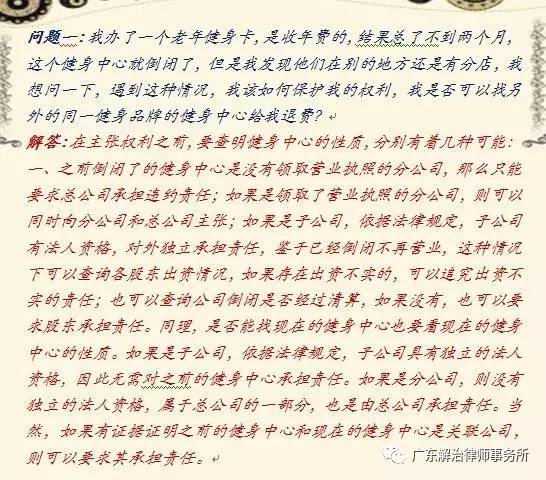 问题一:我办了一个老年健身卡,是收年费的,结果总了不到两个月,
这个健身中心就倒闭了,但是我发现他们在别的地方还是有分店,我
想问一下,遇到这种情况,我该如何保护我的权利,我是否可以找另
外的同一健身品牌的健身中心给我退费?
解答:在主张权利之前,要查明健身中心的性质,分别有着几种可能:
一、之前倒闭了的健身中心是没有领取营业执照的分公司,那么只能
要求总公司承担违约责任;如果是领取了营业执照的分公司,则可以
同时向分公司和总公司主张;如果是子公司,依据法律规定,子公司
有法人资格,对外独立承担责任,鉴于已经倒闭不再营业,这种情况
下可以查询各股东出资情况,如果存在出资不实的,可以追究出资不
实的责任;也可以查询公司倒闭是否经过清算,如果没有,也可以要
求股东承担责任。同理,是否能找现在的健身中心也要看现在的健身
中心的性质。如果是子公司,依据法律规定,子公司具有独立的法人
资格,因此无需对之前的健身中心承担责任。如果是分公司,则没有
独立的法人资格,属于总公司的一部分,也是由总公司承担责任。当
然,如果有证据证明之前的健身中心和现在的健身中心是关联公司,
则可以要求其承担责任。
广东解治律师事务所